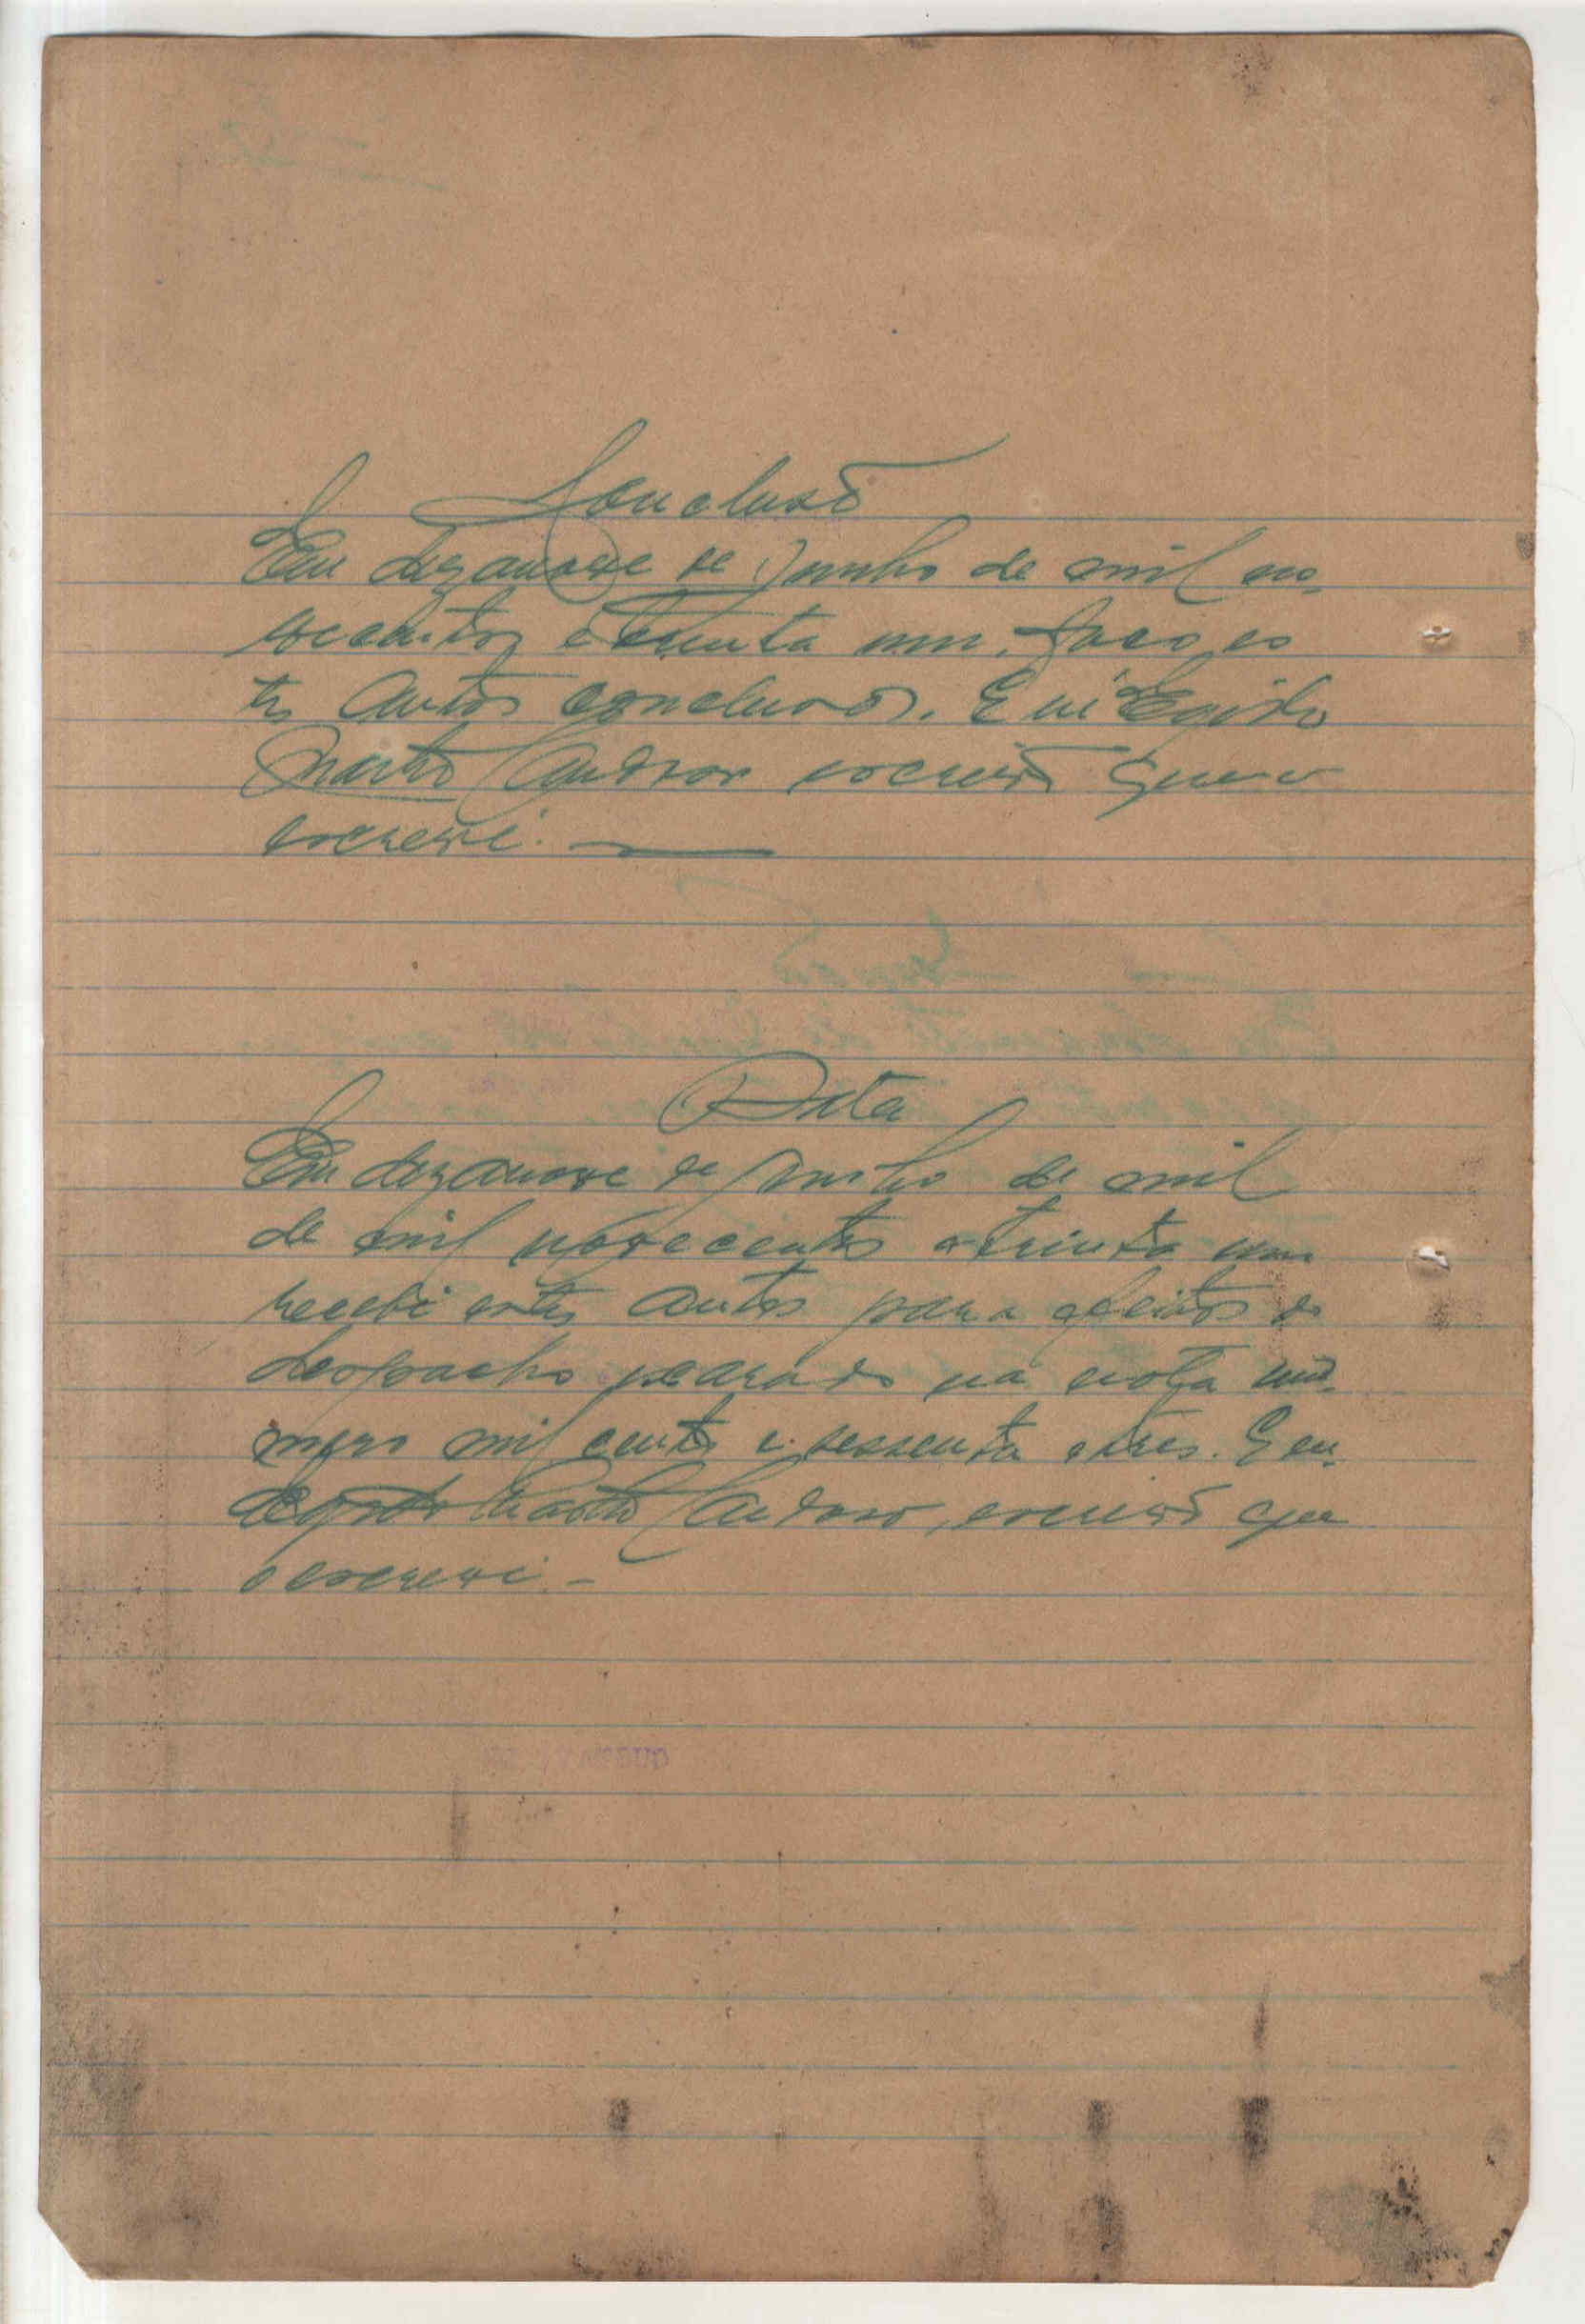 Conclusão
Em dezanove de Junho de mil no-
vecentos e trinta um. Faço es
tes autos conclusos. E eu Egidio
Castro Cardoso escrivão que o
escrevi.
Data
Em dezanove de Junho de mil
de mil novecentos e trinta um
recebi estes autos para efeitos do
despacho na nota nú-
mero mil cento e sessenta e tres. E eu
Egidio Castro Cardoso, escrivão que
o escrevi.-